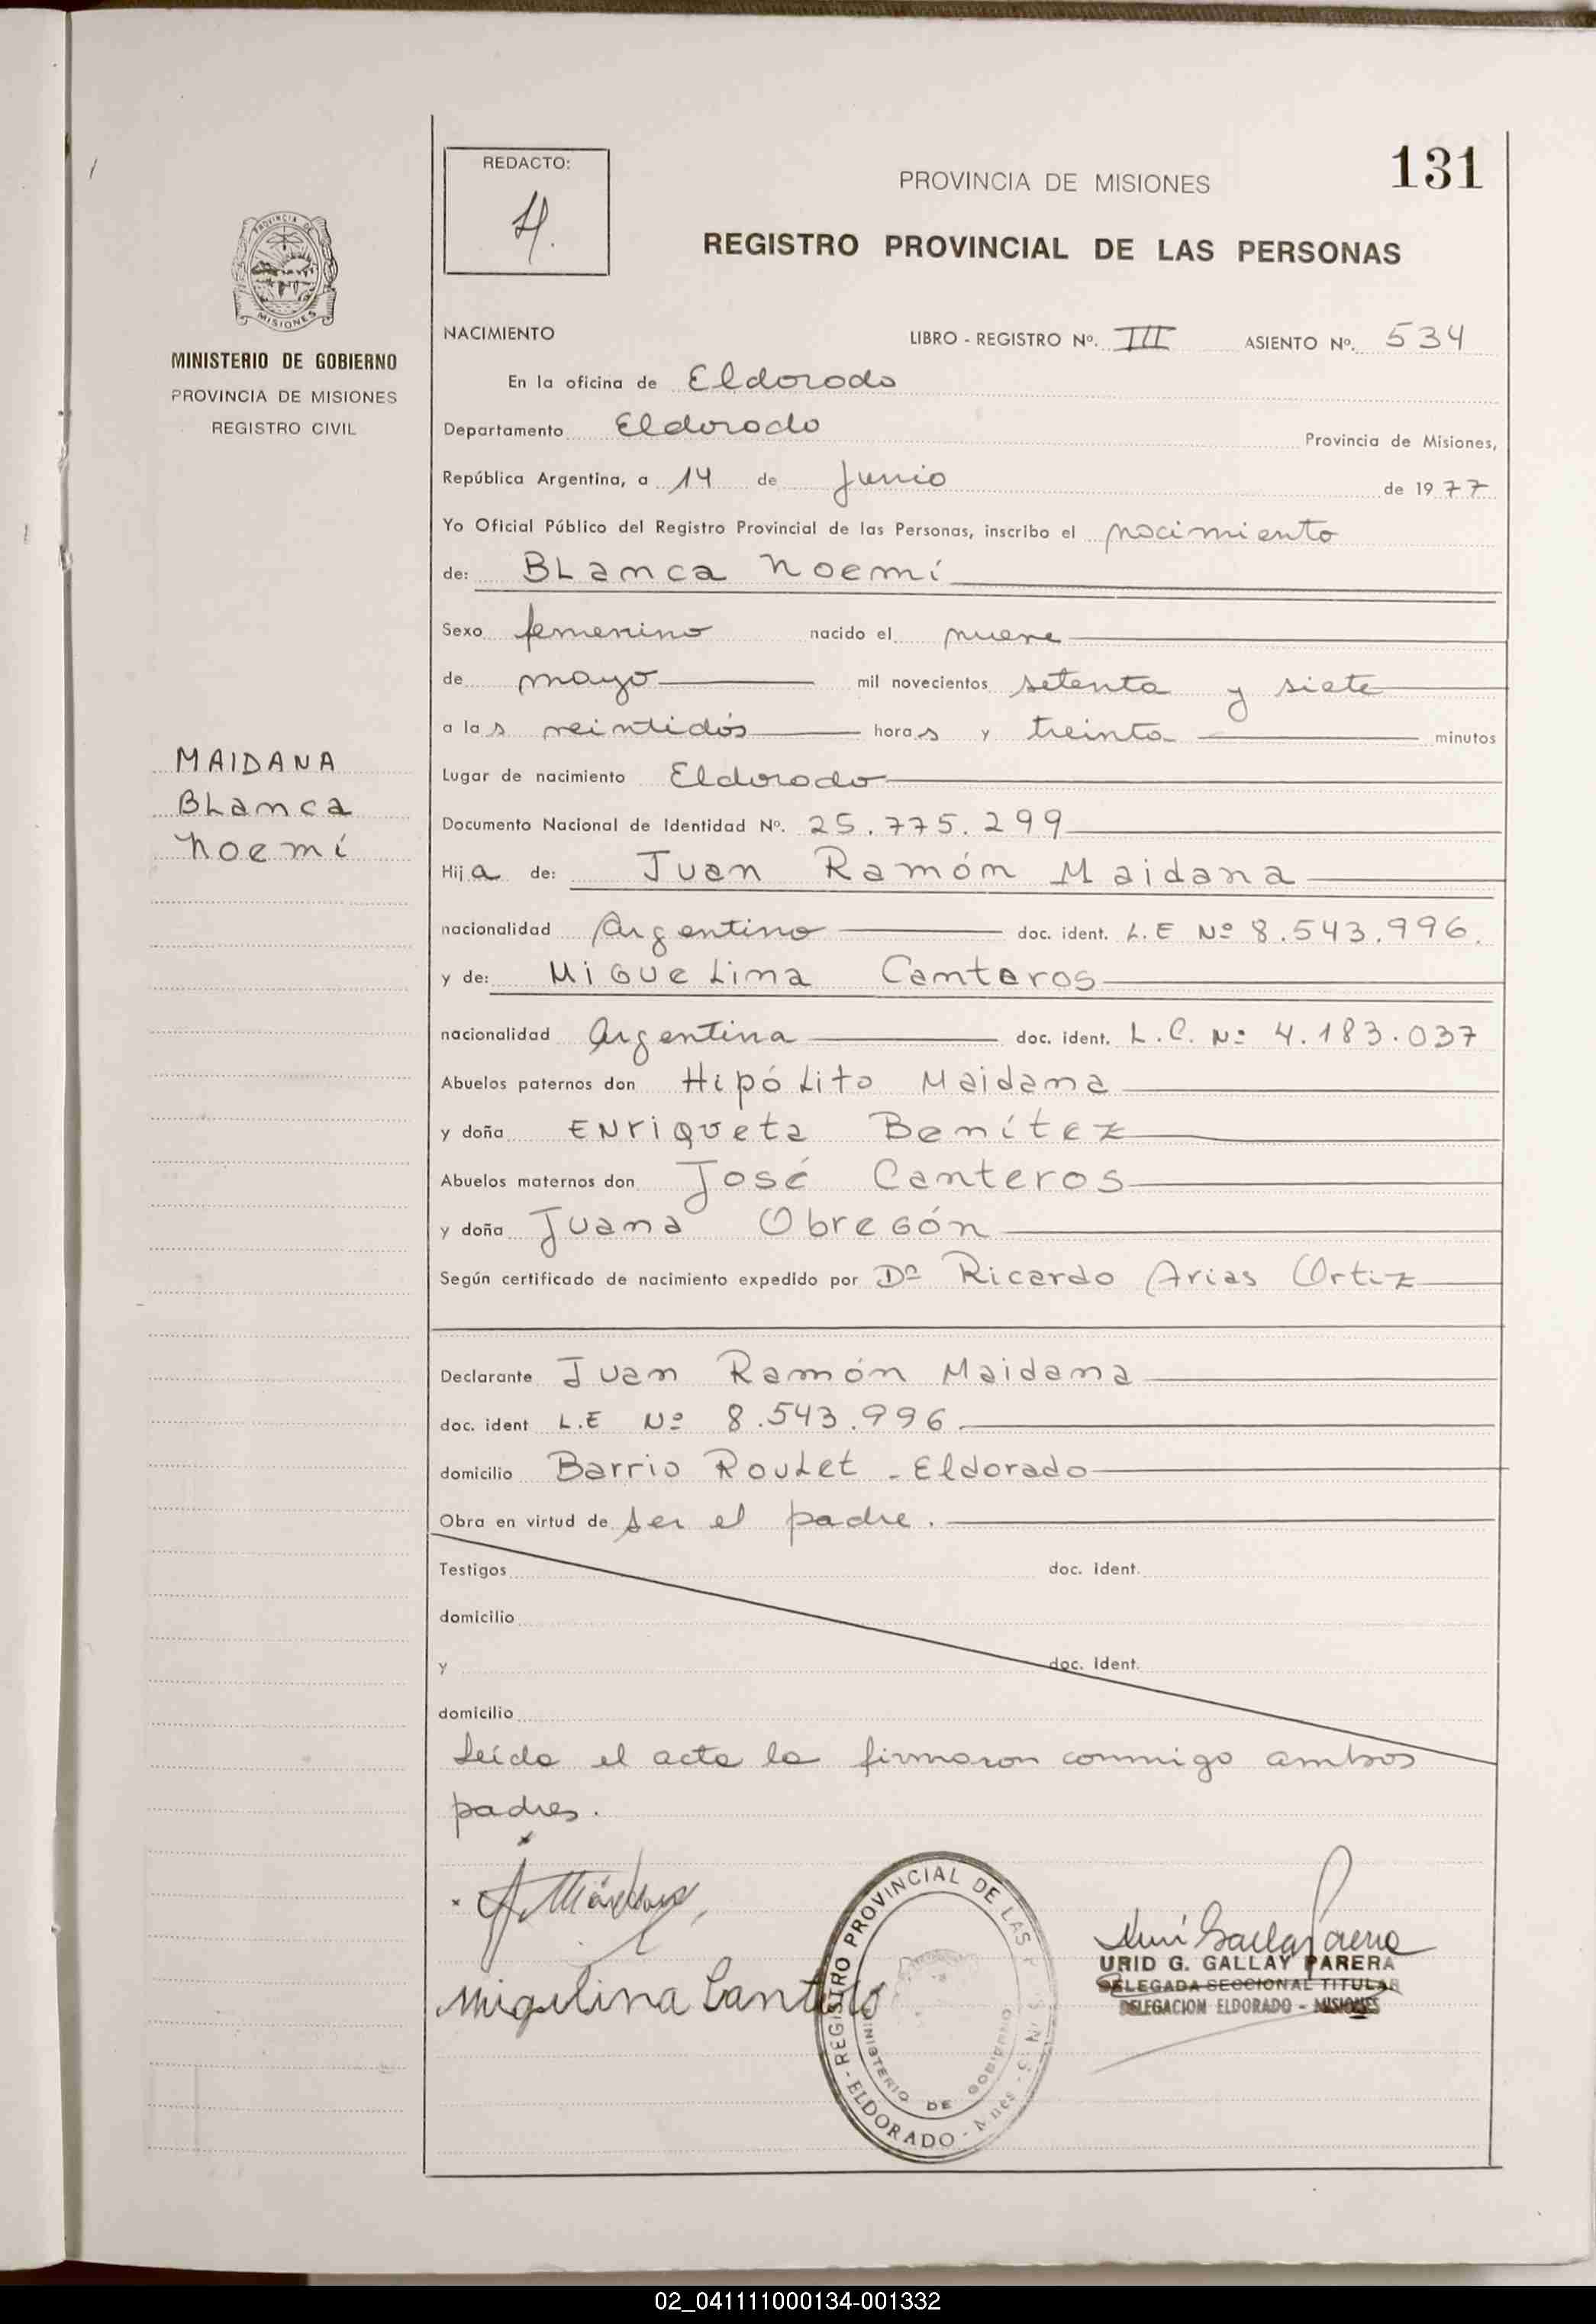 131
REDACTO:
PROVINCIA DE MISIONES
REGISTRO PROVINCIAL DE LAS PERSONAS
PROVINCIA DE
MISIONES
MINISTERIO DE GOBIERNO
PROVINCIA DE MISIONES
REGISTRO CIVIL
MAIDANA
BLanca
Noemí
NACIMIENTO LIBRO - REGISTRO Nº. III ASIENTO Nº. 534
En la oficina de Eldorado
Departamento Eldorado Provincia de Misiones,
República Argentina, a 14 de Junio de 1977
Yo Oficial Público del Registro Provincial de las Personas, inscribo el nacimiento
de: BLanca Noemí
Sexo femenino nacido el nueve
de mayo mil novecientos setenta y siete
a las veintidós horas y treinta minutos
Lugar de nacimiento Eldorado
Documento Nacional de Identidad Nº. 25.775.299
Hija de: Juan Ramón Maidana
nacionalidad Argentino doc. ident. L.E Nº 8.543.996.
y de: MiGUeLina Canteros
nacionalidad Argentina doc. ident. L.C. Nº 4.183.037
Abuelos paternos don HipóLito Maidana
y doña ENriQueta Benítez
Abuelos maternos don José Canteros
y doña Juana Obregón
Según certificado de nacimiento expedido por Dº Ricardo Arias Ortiz
Declarante Juan Ramón Maidana
doc. ident L.E Nº 8.543.996
domicilio Barrio RouLet - Eldorado
Obra en virtud de ser el padre.
Testigos doc. ident.
domicilio
y doc. ident.
domicilio
Leída el acta la firmaron conmigo ambos
padres.
Miguelina Cantero
REGISTRO PROVINCIAL DE LAS
MINISTERIO DE GOBIERNO
ELDORADO - Mnes
URID G. GALLAY PARERA
DELEGADA SECCIONAL TITULAR
DELEGACION ELDORADO - MISIONES
02_041111000134-001332